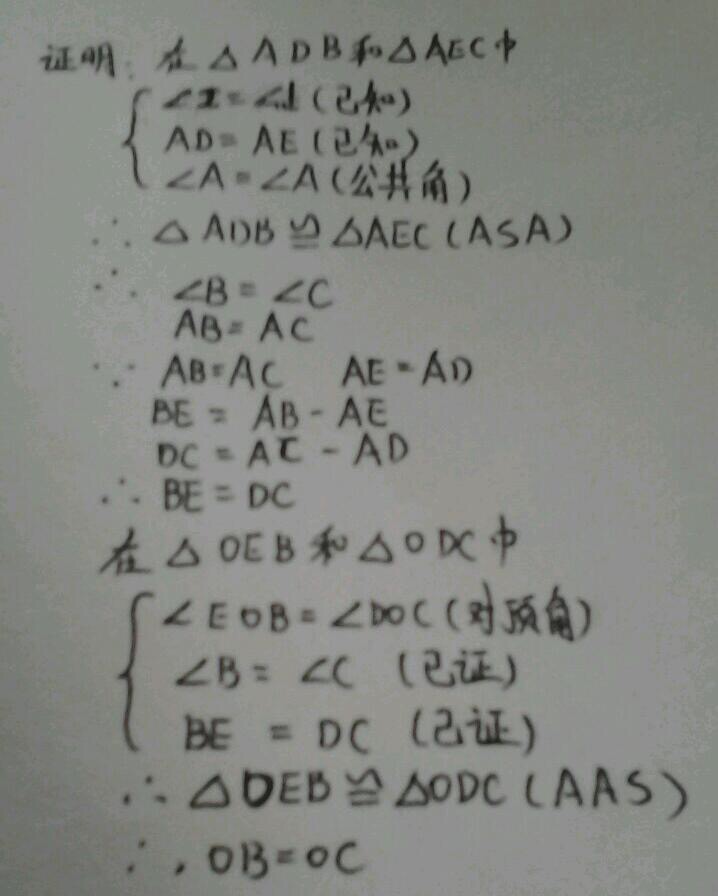 证明: 在△ADB和△AEC中
∠2=∠1(已知)
AD=AE(已知)
∠A=∠A(公共角)
∴△ADB≌△AEC(ASA)
∴ ∠B=∠C
AB=AC
∵ AB=AC AE=AD
BE=AB-AE
DC=AC-AD
∴ BE=DC
在△OEB和△ODC中
∠EOB=∠DOC(对顶角)
∠B=∠C (已证)
BE=DC (已证)
∴△OEB≌△ODC(AAS)
∴,OB=OC